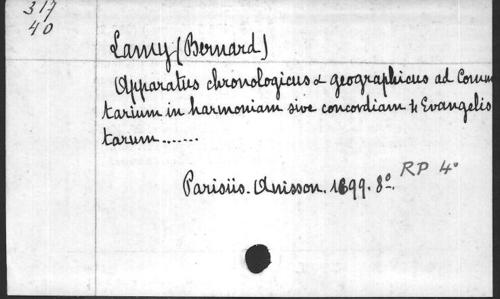 317
40
Lamy (Bernard)
Apparatus chronologicus & geographicus ad Comm
tarium in harmoniam sive concordiam 4 Evangelis
tarum .......
Parisiis. Anisson. 1699. 8º. RP 4º